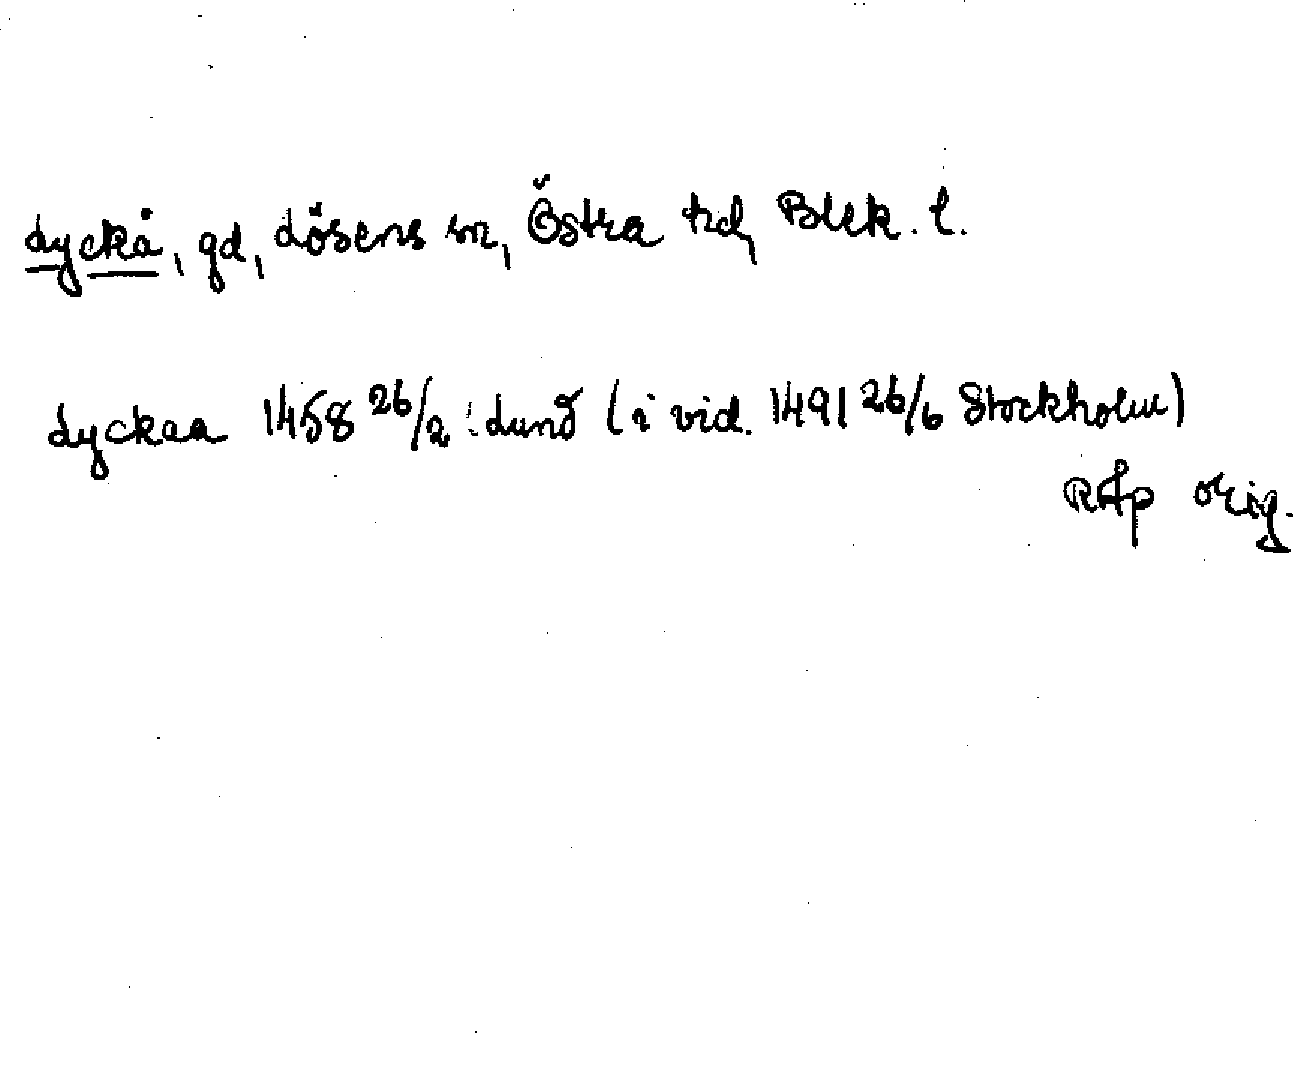 Lyckå, gd, Lösens sn, Östra hd, Blek. l.
Lyckaa 1458 26/2 Lund (i vid. 1491 26/6 Stockholm)
RAp orig.